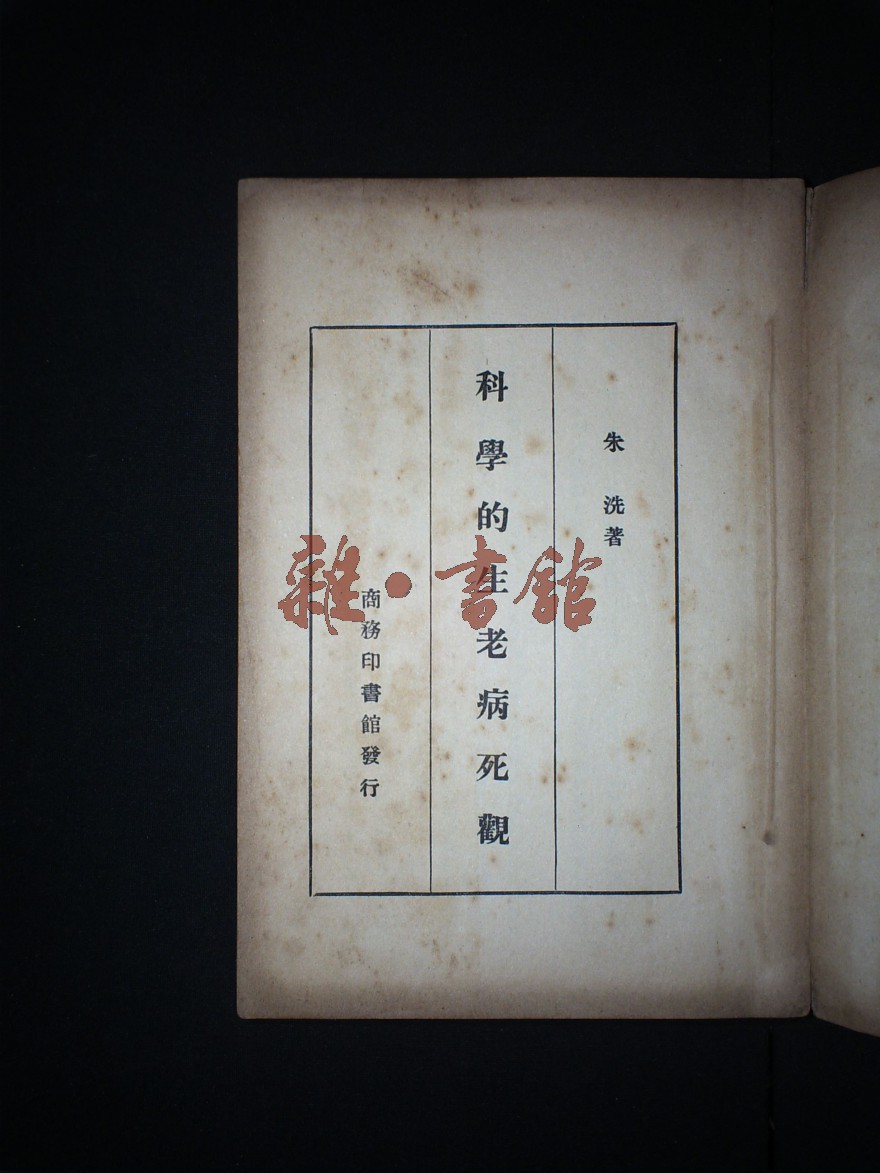 朱洗著
科學的生老病死觀
商務印書館發行
雜·書館